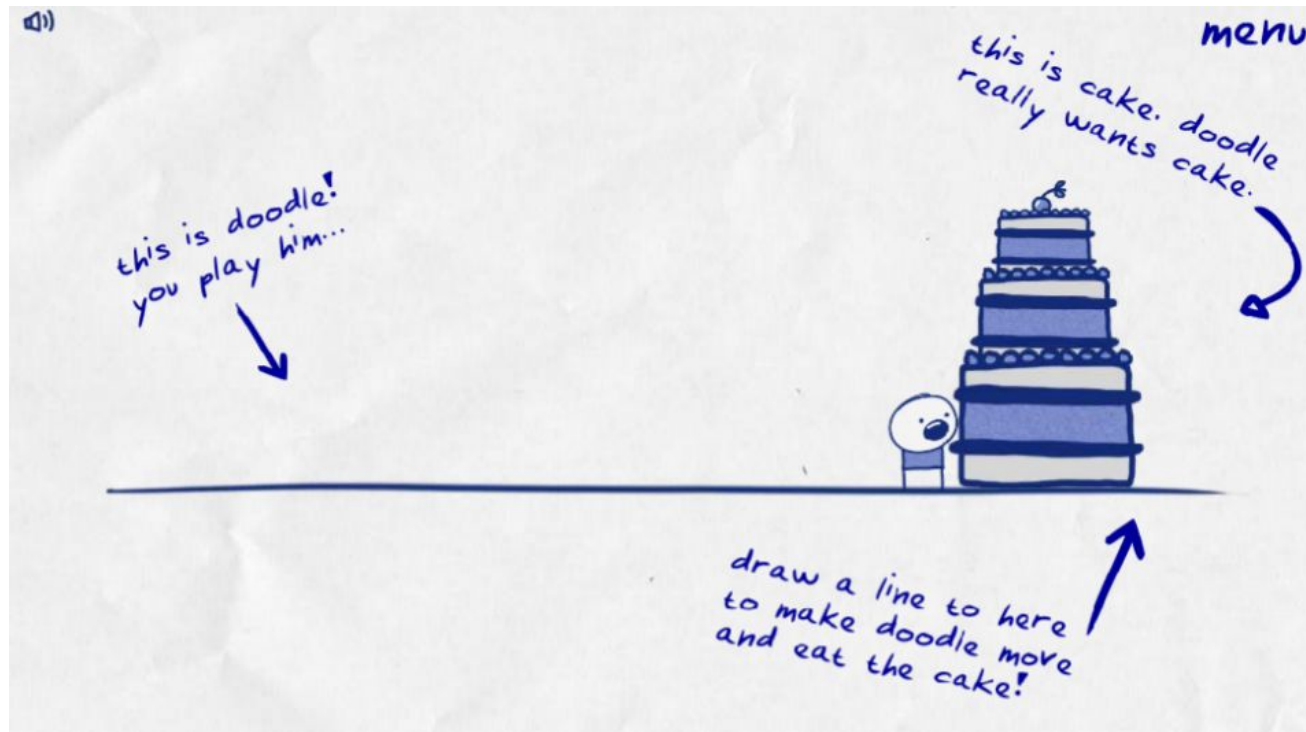 menu
this is cake. doodle
really wants cake.
this is doodle!
you play him...
draw a line to here
to make doodle move
and eat the cake!